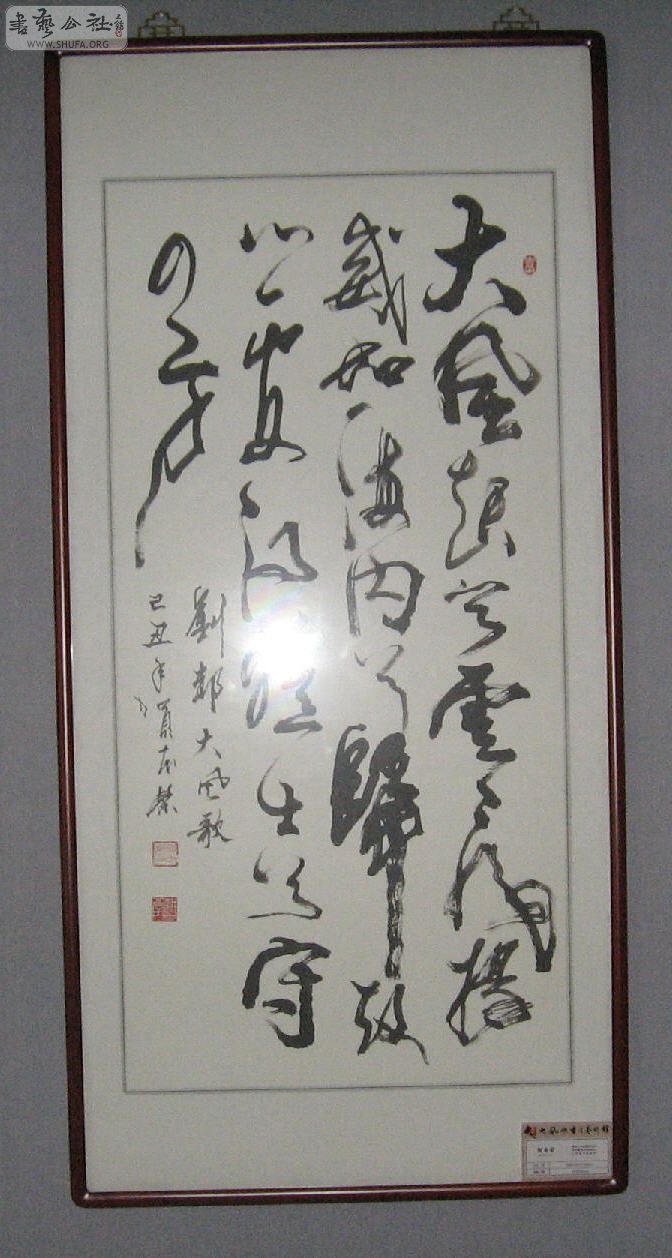 書藝公社
WWW.SHUFA.ORG
大風起兮雲飛揚
威加海内兮歸故
鄉安得猛士兮守
四方
劉邦大風歌
己丑年